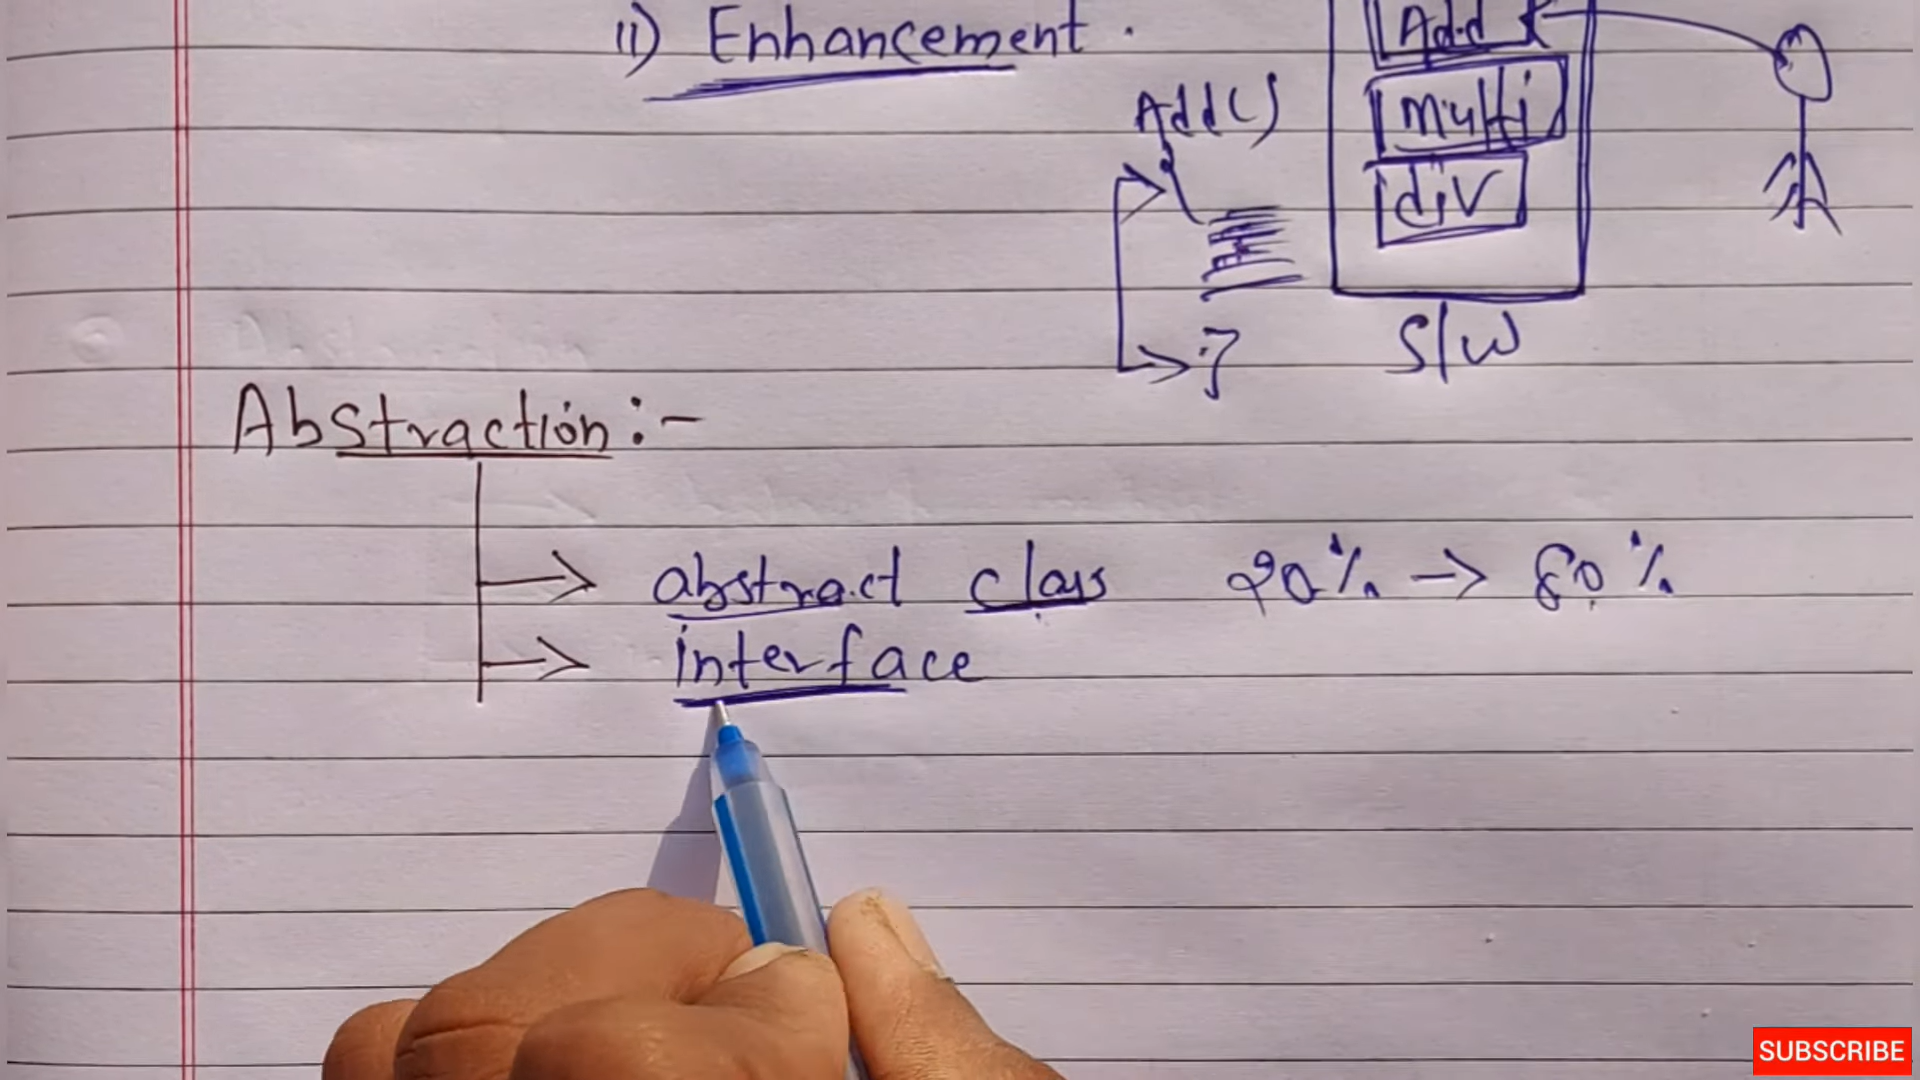 11) Enhancement.
Add
Add()
multi
div
S/W
Abstraction:-
abstract class 20% → 80%
interface
SUBSCRIBE